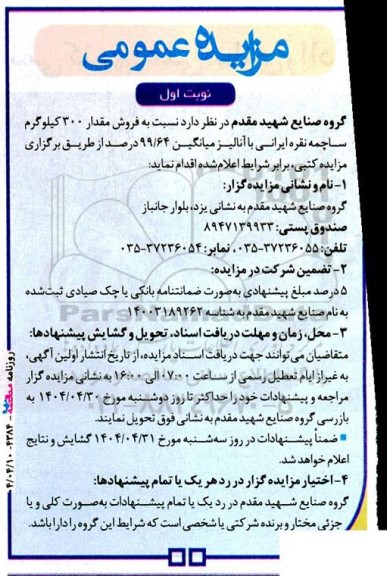 مزایده عمومی
نوبت اول
گروه صنایع شهید مقدم در نظر دارد نسبت به فروش مقدار ۳۰۰ کیلوگرم
ساچمه نقره ایرانی با آنالیز میانگین ۹۹/۶۴ درصد از طریق برگزاری
مزایده کتبی، برابر شرایط اعلام‌شده اقدام نماید:
۱- نام و نشانی مزایده‌گزار:
گروه صنایع شهید مقدم به نشانی یزد، بلوار جانباز
صندوق پستی: ۸۹۴۷۱۳۹۹۳۳
تلفن: ۳۷۲۳۶۰۵۵-۰۳۵، نمابر: ۳۷۲۳۶۰۵۴-۰۳۵
۲- تضمین شرکت در مزایده:
۵ درصد مبلغ پیشنهادی به‌صورت ضمانتنامه بانکی یا چک صیادی ثبت‌شده
به نام صنایع شهید مقدم به شناسه ۱۴۰۰۳۱۸۹۲۶۲
۳- محل، زمان و مهلت دریافت اسناد، تحویل و گشایش پیشنهادها:
متقاضیان می‌توانند جهت دریافت اسناد مزایده، از تاریخ انتشار اولین آگهی،
به غیر از ایام تعطیل رسمی از ساعت ۰۷:۰۰ الی ۱۶:۰۰ به نشانی مزایده گزار
مراجعه و پیشنهادات خود را حداکثر تا روز دوشنبه مورخ ۱۴۰۴/۰۴/۳۰ به
بازرسی گروه صنایع شهید مقدم به نشانی فوق تحویل نمایند.
▪ ضمناً پیشنهادات در روز سه‌شنبه مورخ ۱۴۰۴/۰۴/۳۱ گشایش و نتایج
اعلام خواهد شد.
۴- اختیار مزایده گزار در رد هر یک یا تمام پیشنهادها:
گروه صنایع شهید مقدم در رد یک یا تمام پیشنهادات به‌صورت کلی و یا
جزئی مختار و برنده شرکتی یا شخصی است که شرایط این گروه را دارا باشد.
روزنامه